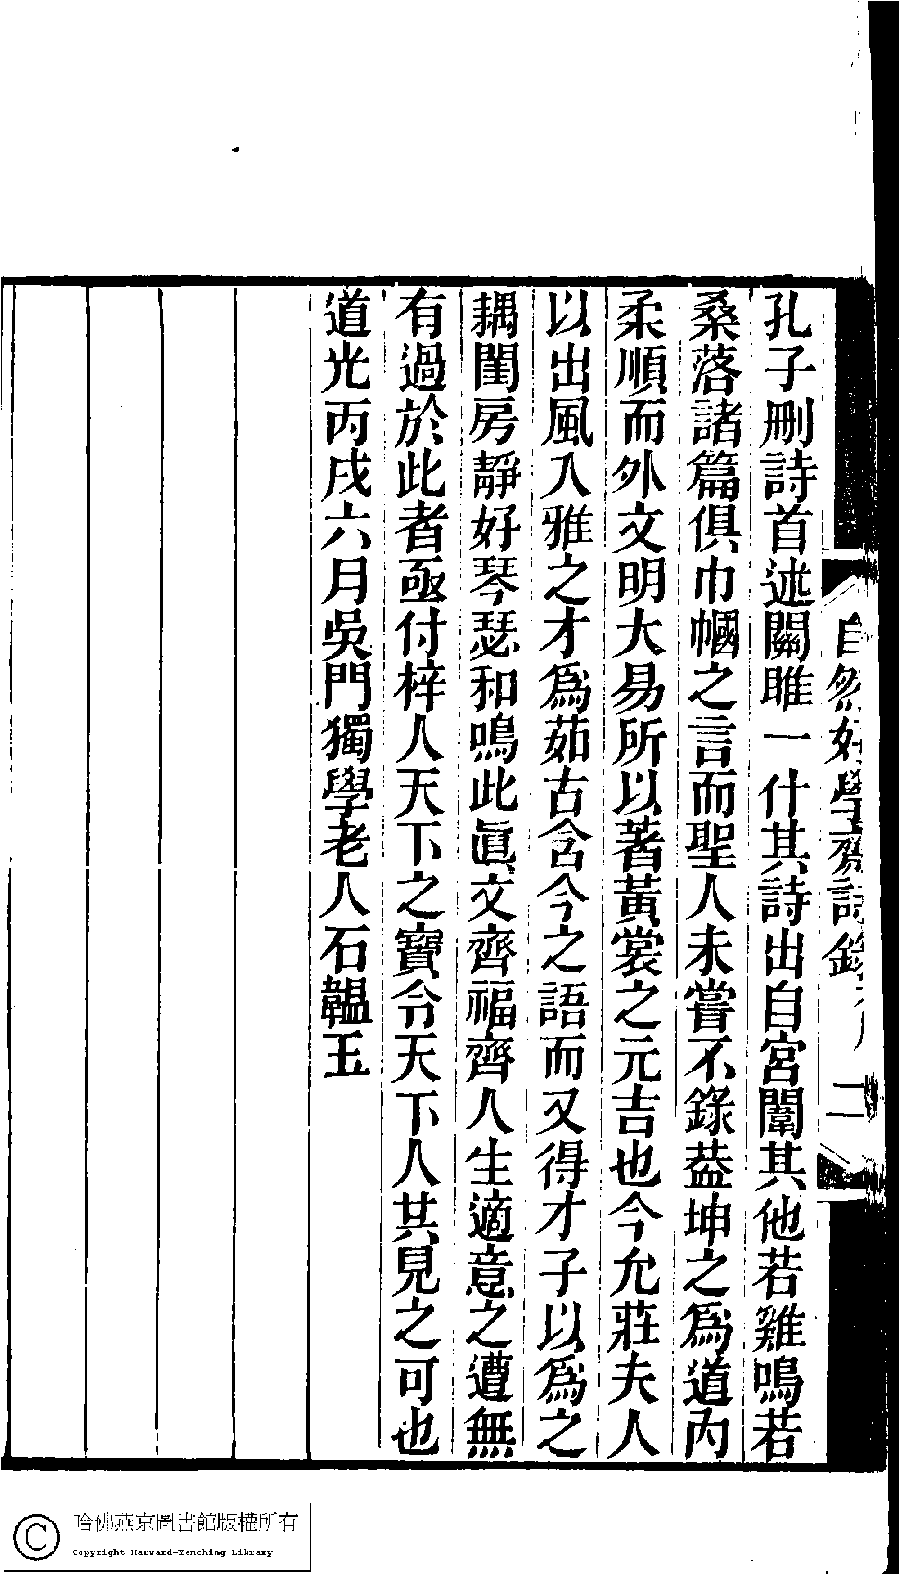 孔子刪詩首述關雎一什其詩出自宮闈其他若雞鳴若
桑落諸篇俱巾幗之言而聖人未嘗不錄葢坤之爲道内
柔順而外文明大易所以著黃裳之元吉也今允莊夫人
以出風入雅之才爲茹古含今之語而又得才子以爲之
耦閨房靜好琴瑟和鳴此眞文齊福齊人生適意之遭無
有過於此者亟付梓人天下之寶令天下人共見之可也
道光丙戌六月吳門獨學老人石韞玉
自然好學齋詩錄
二
哈佛燕京圖書館版權所有
Copyright Harvard-Yenching Library